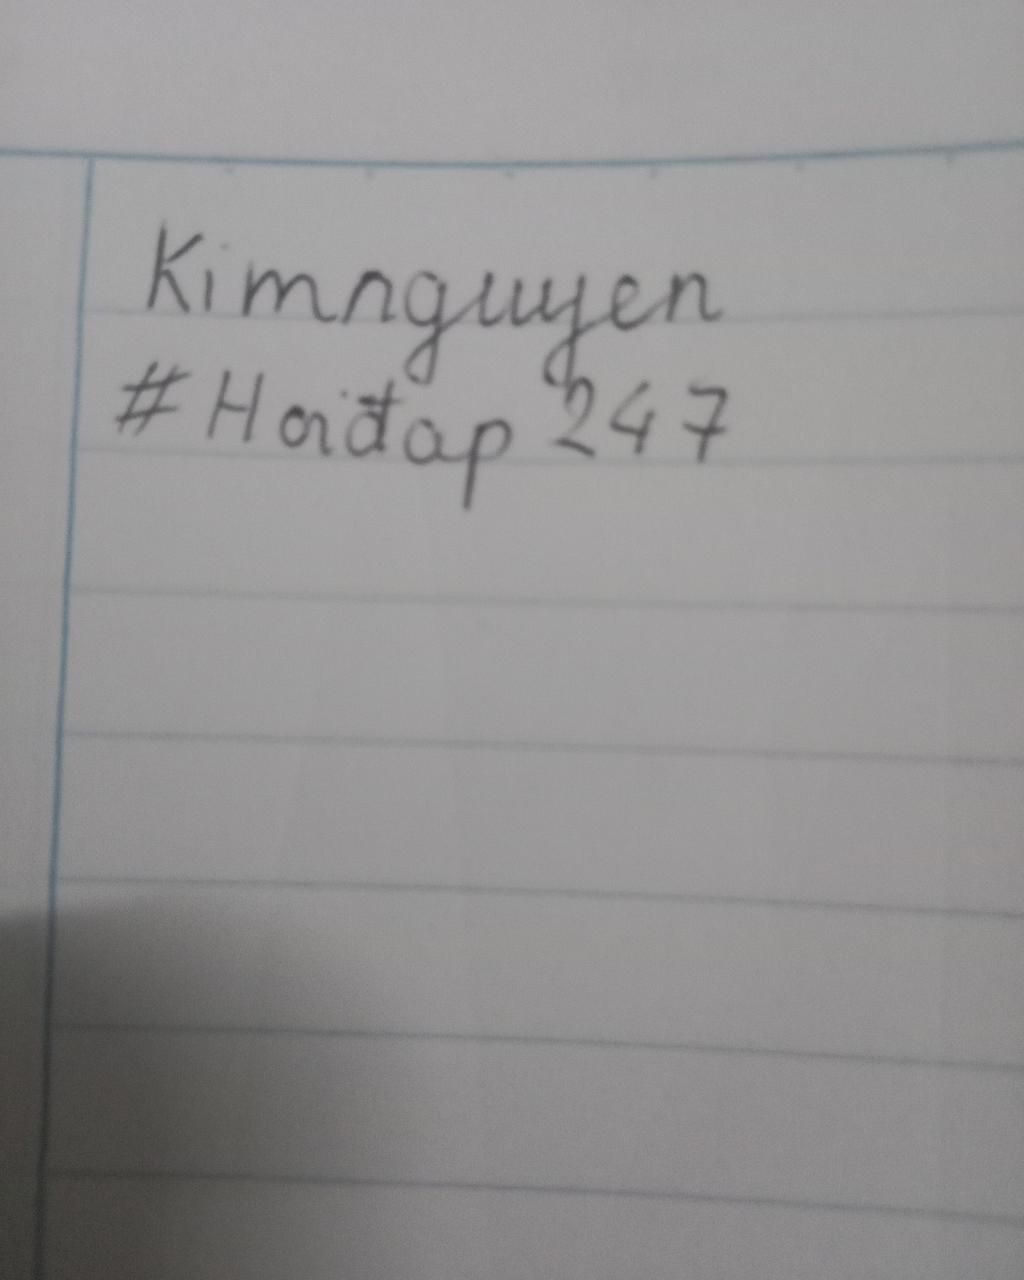 Kimnguyen
#Hoiđap 247